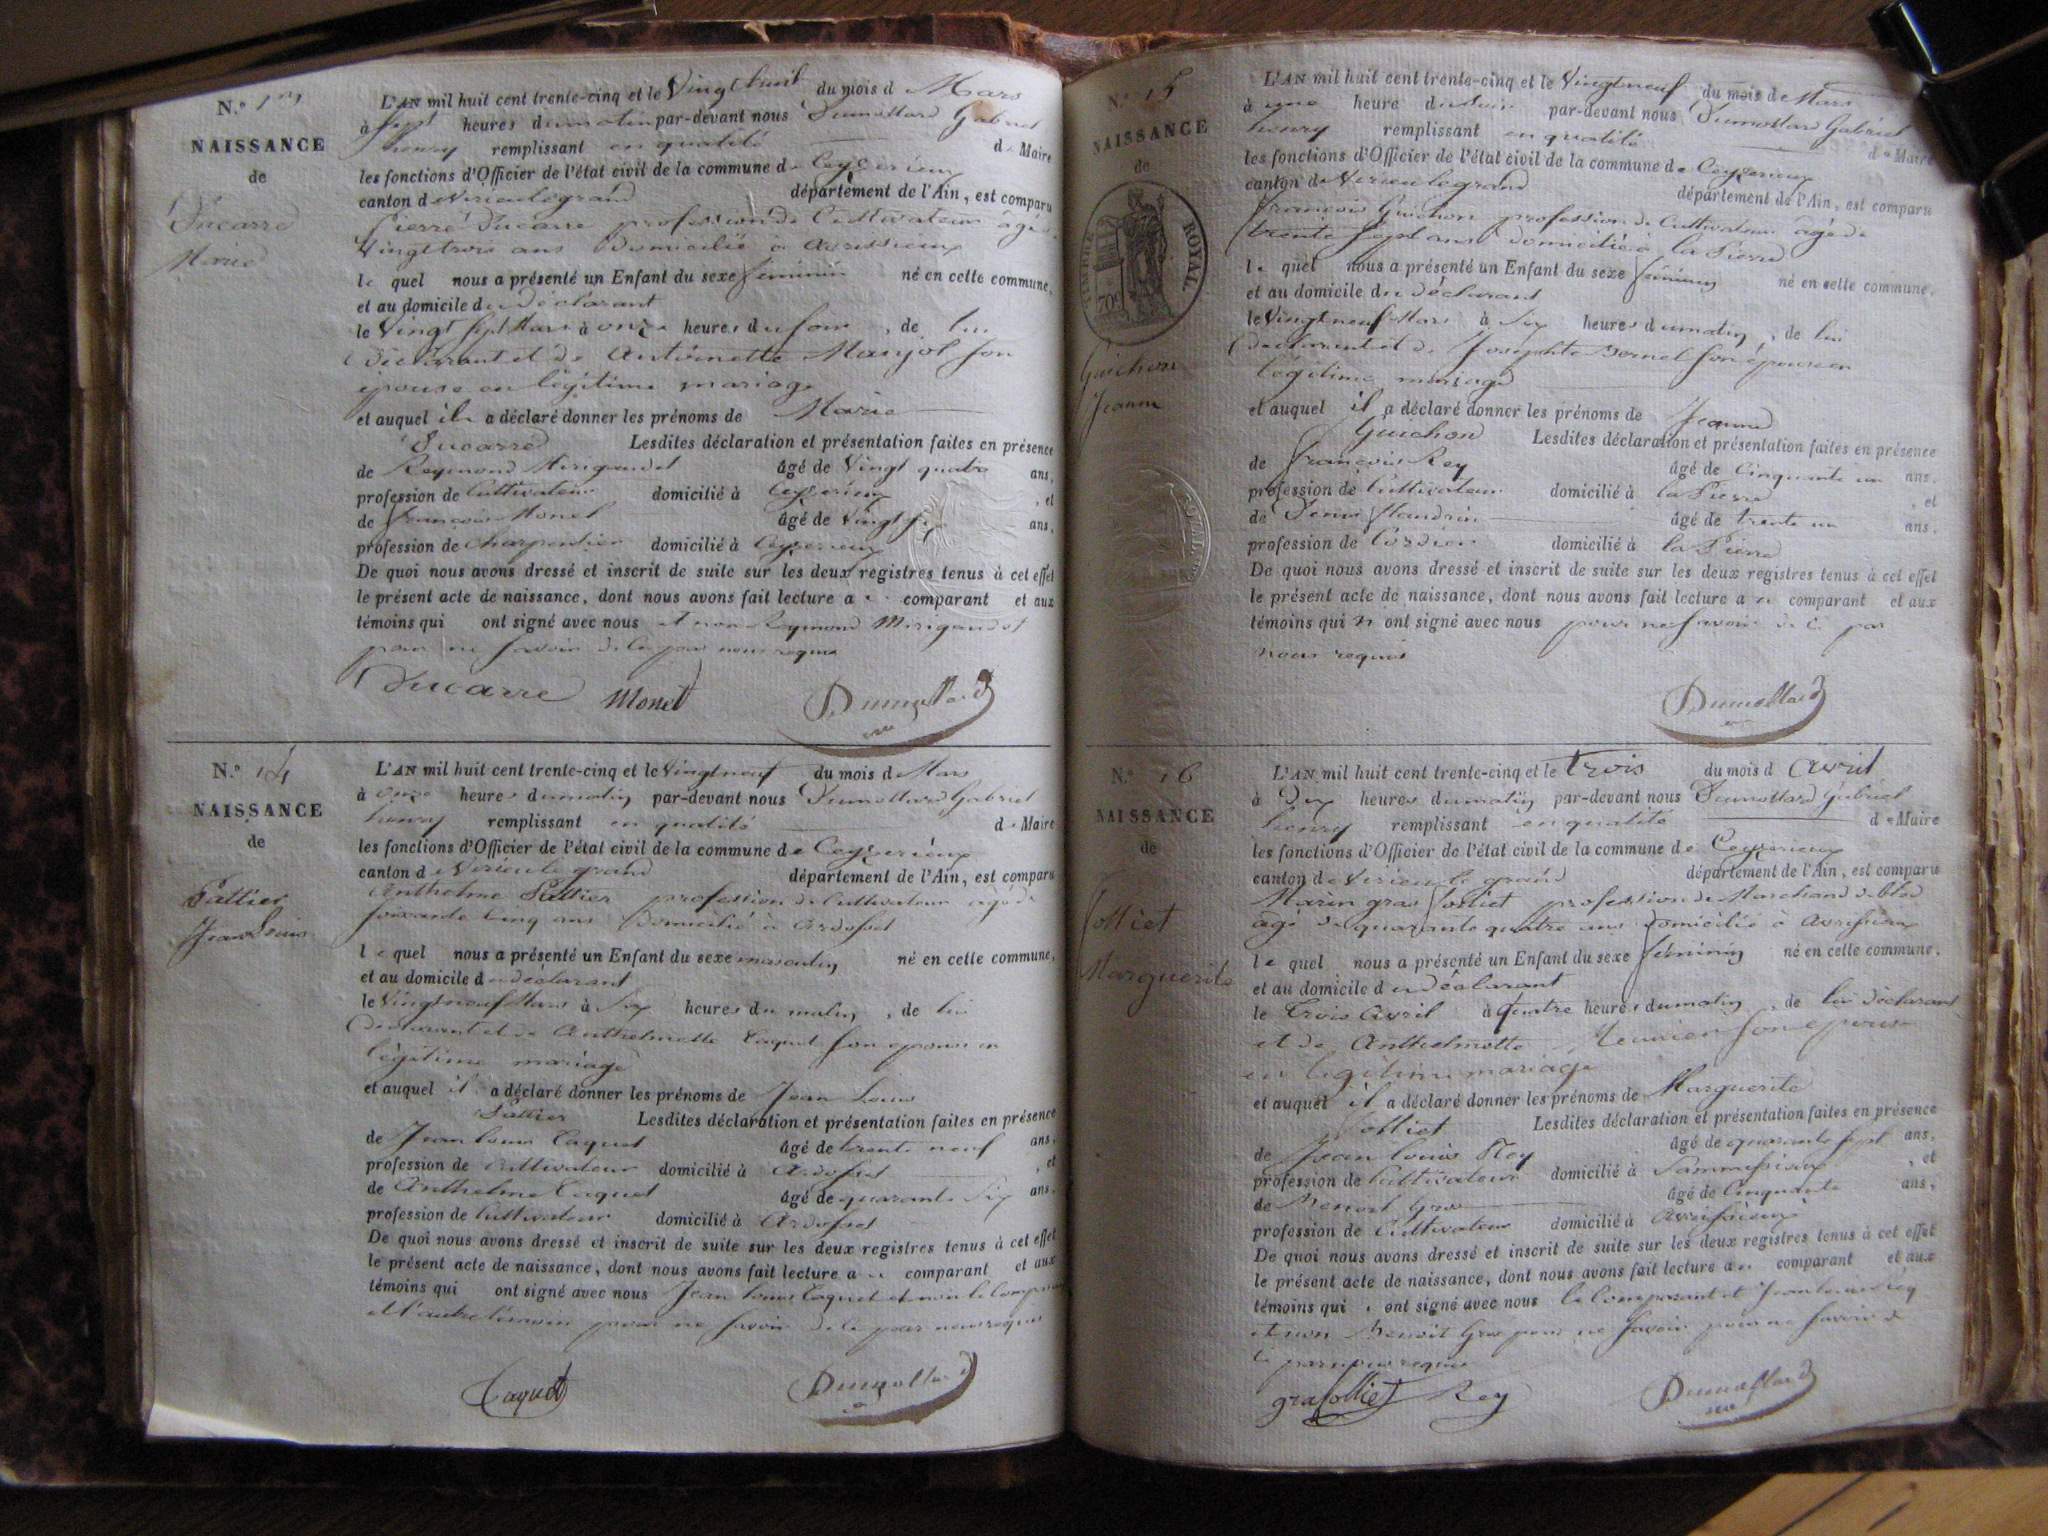 N.o 13
NAISSANCE
de
Ducarre
Marie
L'AN mil huit cent trente-cinq et le Vingt huit du mois d Mars
à sept heures du matin par-devant nous Dumollard Gabriel
henry remplissant en qualité de Maire
les fonctions d'Officier de l'état civil de la commune de Ceyzerieux
canton de Virieu le grand département de l'Ain, est comparu
Pierre Ducarre profession de Cultivateur âgé de
Vingt trois ans domicilié à avrissieux
le quel nous a présenté un Enfant du sexe féminin né en cette commune,
et au domicile du déclarant
le Vingt sept Mars à onze heures du soir, de lui
déclarant et de Antoinette Manjol son
épouse en légitime mariage
et auquel il a déclaré donner les prénoms de Marie
Ducarre Lesdites déclaration et présentation faites en présence
de Reymond Mirigaudet âgé de Vingt quatre ans,
profession de Cultivateur domicilié à Ceyzerieux, et
de françois Monet âgé de Vingt six ans,
profession de charpentier domicilié à Ceyzerieux
De quoi nous avons dressé et inscrit de suite sur les deux registres tenus à cet effet
le présent acte de naissance, dont nous avons fait lecture au comparant et aux
témoins qui ont signé avec nous et non Reymond Mirigaudet
pour ne savoir de ce par nous requis
Ducarre Monet Dumollard
N.o 14
NAISSANCE
de
Pattier
Jean Louis
L'AN mil huit cent trente-cinq et le Vingt neuf du mois d Mars
à onze heures du matin par-devant nous Dumollard Gabriel
henry remplissant en qualité de Maire
les fonctions d'Officier de l'état civil de la commune de Ceyzerieux
canton de Virieu le grand département de l'Ain, est comparu
Anthelme Pattier profession de Cultivateur âgé de
soixante cinq ans domicilié à ardosset
le quel nous a présenté un Enfant du sexe masculin né en cette commune,
et au domicile du déclarant
le Vingt neuf Mars à six heures du matin, de lui
déclarant et de Anthelmette Caquet son épouse en
légitime mariage
et auquel il a déclaré donner les prénoms de Jean Louis
Pattier Lesdites déclaration et présentation faites en présence
de Jean louis Caquet âgé de trente neuf ans,
profession de Cultivateur domicilié à Ardosset, et
de Anthelme Caquet âgé de quarante six ans,
profession de Cultivateur domicilié à Ardosset
De quoi nous avons dressé et inscrit de suite sur les deux registres tenus à cet effet
le présent acte de naissance, dont nous avons fait lecture au comparant et aux
témoins qui ont signé avec nous Jean louis Caquet et non le comparant
et l'autre témoin pour ne savoir de ce par nous requis
Caquet Dumollard
N.o 15
NAISSANCE
de
TIMBRE ROYAL
709
Guichon
Jeanne
L'AN mil huit cent trente-cinq et le Vingt neuf du mois de Mars
à une heure du soir par-devant nous Dumollard Gabriel
henry remplissant en qualité de Maire
les fonctions d'Officier de l'état civil de la commune de Ceyzerieux
canton de Virieu le grand département de l'Ain, est comparu
françois Guichon profession de Cultivateur âgé de
trente sept ans domicilié à la Pierre
le quel nous a présenté un Enfant du sexe féminin né en cette commune,
et au domicile du déclarant
le Vingt neuf Mars à six heures du matin, de lui
déclarant et de Josephte Bornet son épouse en
légitime mariage
et auquel il a déclaré donner les prénoms de Jeanne
Guichon Lesdites déclaration et présentation faites en présence
de françois Rey âgé de cinquante un ans,
profession de Cultivateur domicilié à la Pierre, et
de Denis flandrin âgé de trente un ans,
profession de Cordier domicilié à la Pierre
De quoi nous avons dressé et inscrit de suite sur les deux registres tenus à cet effet
le présent acte de naissance, dont nous avons fait lecture au comparant et aux
témoins qui n ont signé avec nous pour ne savoir de ce par
nous requis
Dumollard
N.o 16
NAISSANCE
de
Jolliet
Marguerite
L'AN mil huit cent trente-cinq et le trois du mois d avril
à dix heures du matin par-devant nous Dumollard Gabriel
henry remplissant en qualité de Maire
les fonctions d'Officier de l'état civil de la commune de Ceyzerieux
canton de Virieu le grand département de l'Ain, est comparu
Marin gras Jolliet profession de Marchand de bled
âgé de quarante quatre ans domicilié à avrissieux
le quel nous a présenté un Enfant du sexe féminin né en cette commune,
et au domicile du déclarant
le trois avril à quatre heures du matin, de lui déclarant
et de Anthelmette Meunier son épouse
en légitime mariage
et auquel il a déclaré donner les prénoms de Marguerite
Jolliet Lesdites déclaration et présentation faites en présence
de Jean louis Rey âgé de quarante sept ans,
profession de Cultivateur domicilié à Sammissieux, et
de Benoit Gros âgé de Cinquante ans,
profession de Cultivateur domicilié à avrissieux
De quoi nous avons dressé et inscrit de suite sur les deux registres tenus à cet effet
le présent acte de naissance, dont nous avons fait lecture au comparant et aux
témoins qui ont signé avec nous le Comparant et Jean louis Rey
et non Benoit Gros pour ne savoir pour ne savoir de
ce par nous requis
grasJolliet Rey Dumollard